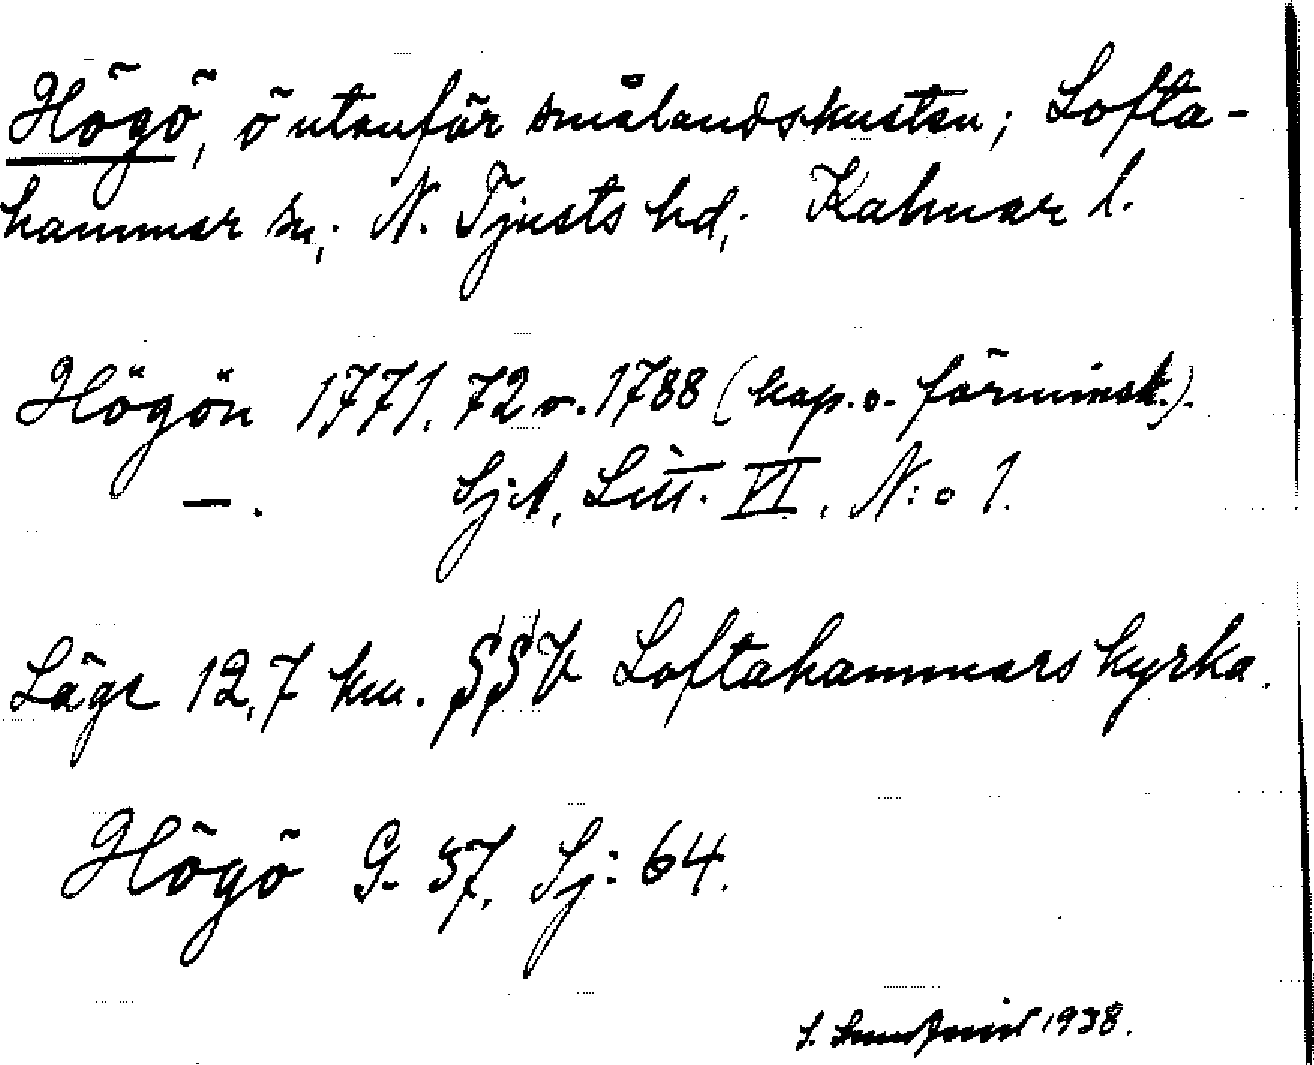 Högö, ö utanför smålandskusten; Lofta-
hammar sn; N. Tjusts hd; Kalmar l.
Högön 1771. 72 o. 1788 (kap. o. förminsk.).
—. Sj:A, Litt. VI, N:o 1.
Läge 12,7 km. SSV Loftahammars kyrka.
Högö G. 57, Sj: 64.
S. 1938.